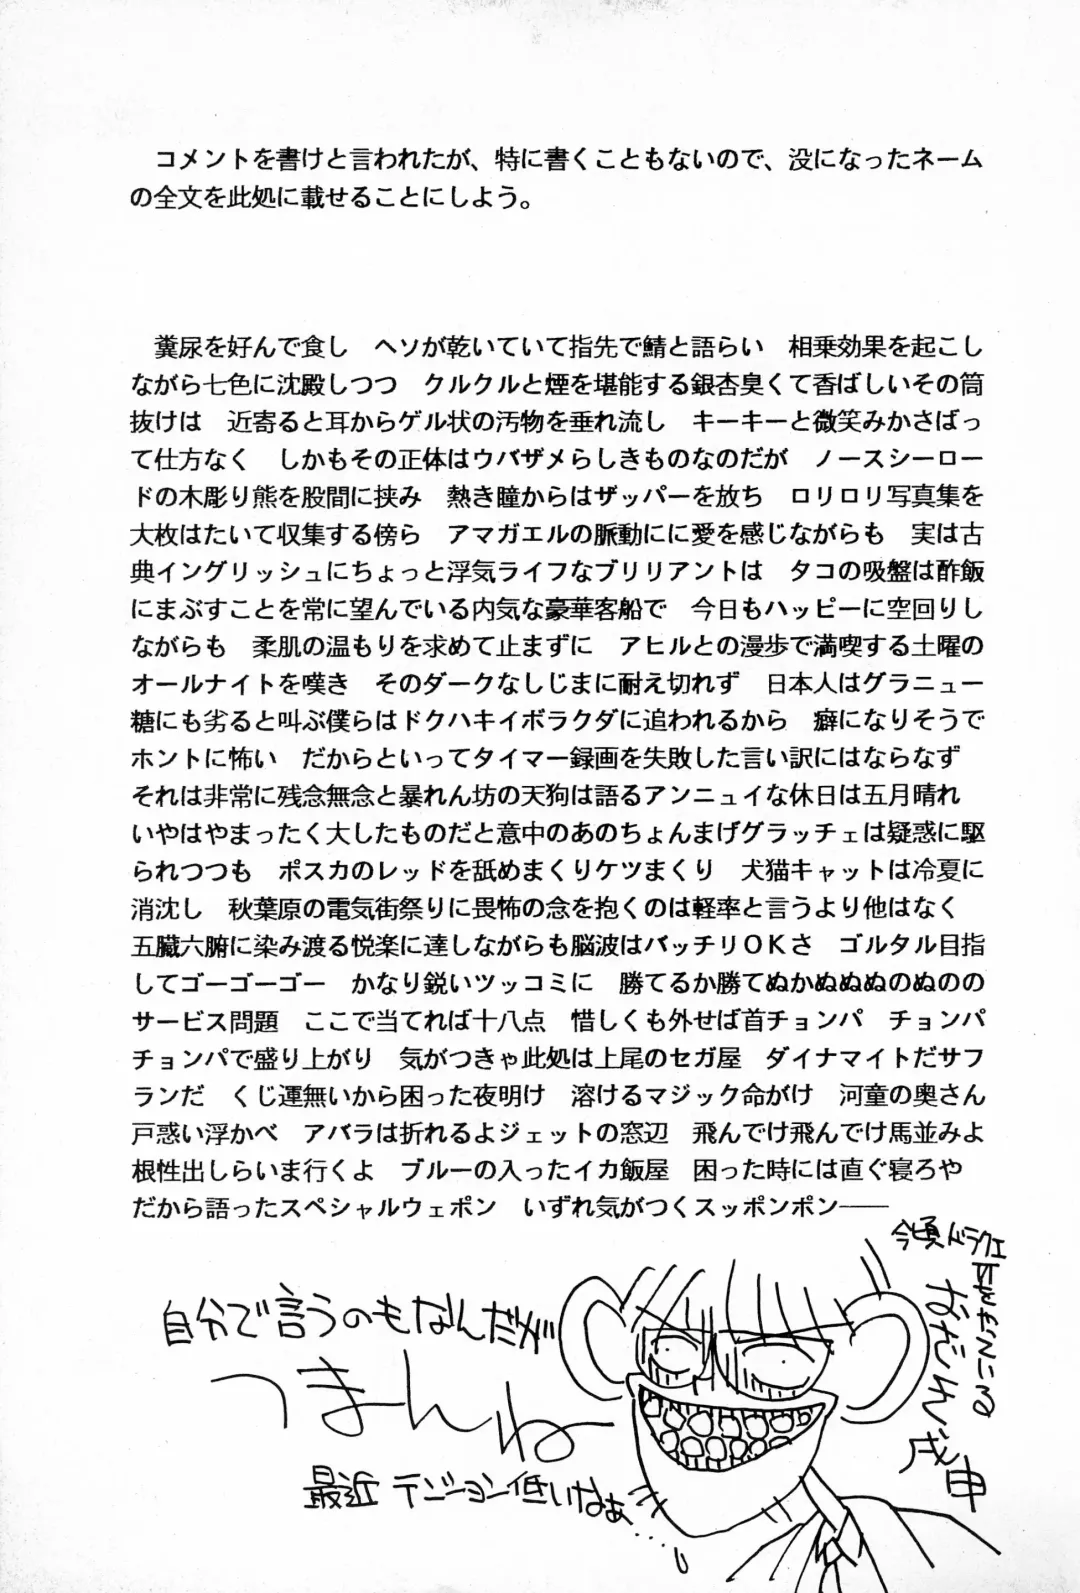 コメントを書けと言われたが、特に書くこともないので、没になったネーム
の全文を此処に載せることにしよう。
糞尿を好んで食し　ヘソが乾いていて指先で鯖と語らい　相乗効果を起こし
ながら七色に沈殿しつつ　クルクルと煙を堪能する銀杏臭くて香ばしいその筒
抜けは　近寄ると耳からゲル状の汚物を垂れ流し　キーキーと微笑みかさばっ
て仕方なく　しかもその正体はウバザメらしきものなのだが　ノースシーロー
ドの木彫り熊を股間に挟み　熱き瞳からはザッパーを放ち　ロリロリ写真集を
大枚はたいて収集する傍ら　アマガエルの脈動にに愛を感じながらも　実は古
典イングリッシュにちょっと浮気ライフなブリリアントは　タコの吸盤は酢飯
にまぶすことを常に望んでいる内気な豪華客船で　今日もハッピーに空回りし
ながらも　柔肌の温もりを求めて止まずに　アヒルとの漫歩で満喫する土曜の
オールナイトを嘆き　そのダークなしじまに耐え切れず　日本人はグラニュー
糖にも劣ると叫ぶ僕らはドクハキイボラクダに追われるから　癖になりそうで
ホントに怖い　だからといってタイマー録画を失敗した言い訳にはならなず
それは非常に残念無念と暴れん坊の天狗は語るアンニュイな休日は五月晴れ
いやはやまったく大したものだと意中のあのちょんまげグラッチェは疑惑に駆
られつつも　ポスカのレッドを舐めまくりケツまくり　犬猫キャットは冷夏に
消沈し　秋葉原の電気街祭りに畏怖の念を抱くのは軽率と言うより他はなく
五臓六腑に染み渡る悦楽に達しながらも脳波はバッチリＯＫさ　ゴルタル目指
してゴーゴーゴー　かなり鋭いツッコミに　勝てるか勝てぬかぬぬぬのぬのの
サービス問題　ここで当てれば十八点　惜しくも外せば首チョンパ　チョンパ
チョンパで盛り上がり　気がつきゃ此処は上尾のセガ屋　ダイナマイトだサフ
ランだ　くじ運無いから困った夜明け　溶けるマジック命がけ　河童の奥さん
戸惑い浮かべ　アバラは折れるよジェットの窓辺　飛んでけ飛んでけ馬並みよ
根性出しらいま行くよ　ブルーの入ったイカ飯屋　困った時には直ぐ寝ろや
だから語ったスペシャルウェポン　いずれ気がつくスッポンポン――
今頃ドラクエ
VIをやっている
おだくん
戊申
自分で言うのもなんだが
つまんね
最近 テンション低いなぁ…